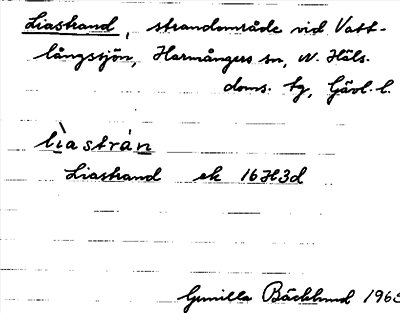 Liastrand, strandområde vid Vatt-
långssjön, Harmångers sn, N. Häls.
doms. tg, Gävl. l.
lìastrán
Liastrand ek 16H3d
Gunilla Bäcklund 196